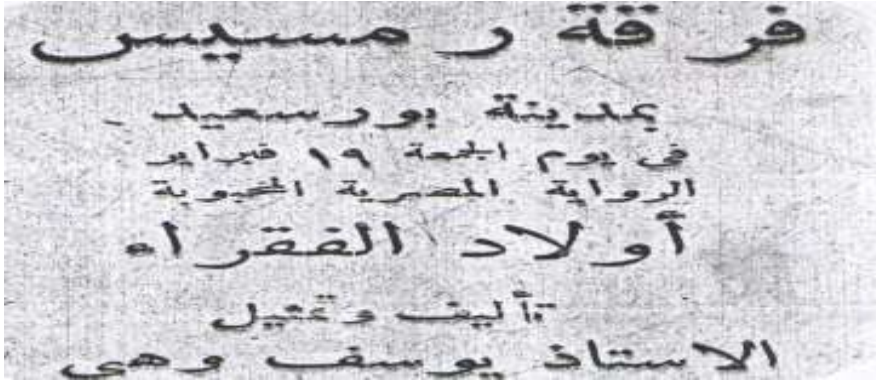 فرقة رمسيس
بمدينة بورسعيد
فى يوم الجمعة ١٩ فبراير
الرواية المصرية المحبوبة
أولاد الفقراء
تأليف وتمثيل
الاستاذ يوسف وهبى